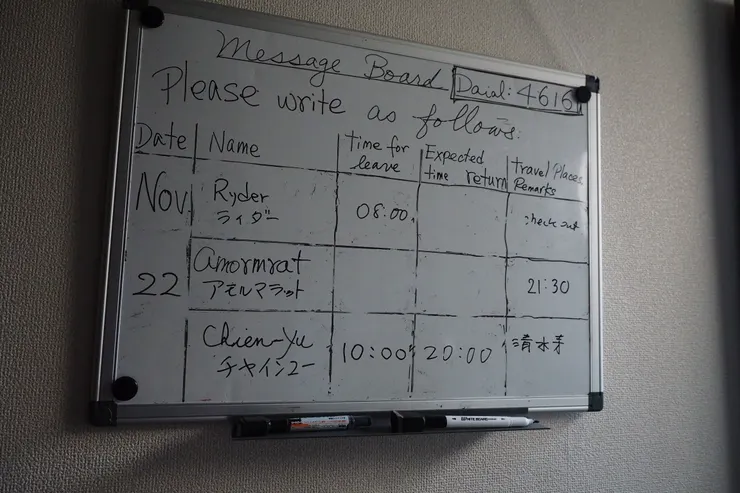 Message Board
Daial: 4616
Please write as follows:
Date Name Time for leave Expected time return Travel Places Remarks
Nov Ryder 08:00 check out
ライダー
22 Amornrat 21:30
アモルマラット
Chien-Yu 10:00 20:00 清水
チャイシユー